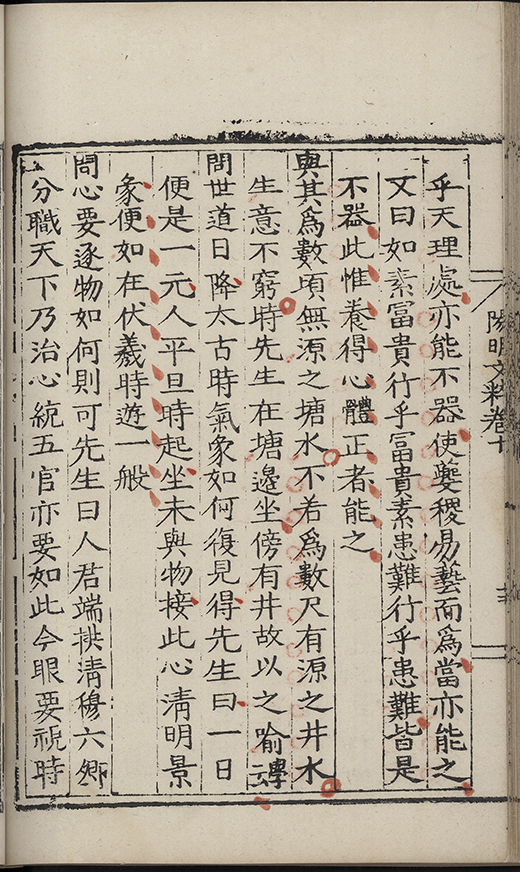 陽明文粹卷十
乎天理處亦能不器使夔稷易藝而爲當亦能之
又曰如素冨貴行乎冨貴素患難行乎患難皆是
不器此惟養得心體正者能之
與其爲數頃無源之塘水不若爲數尺有源之井水
生意不窮時先生在塘邊坐傍有井故以之喻學云
問世道日降太古時氣象如何復見得先生曰一日
便是一元人平旦時起坐未與物接此心清明景
象便如在伏羲時遊一般
問心要逐物如何則可先生曰人君端拱清穆六卿
分職天下乃治心統五官亦要如此今眼要視時